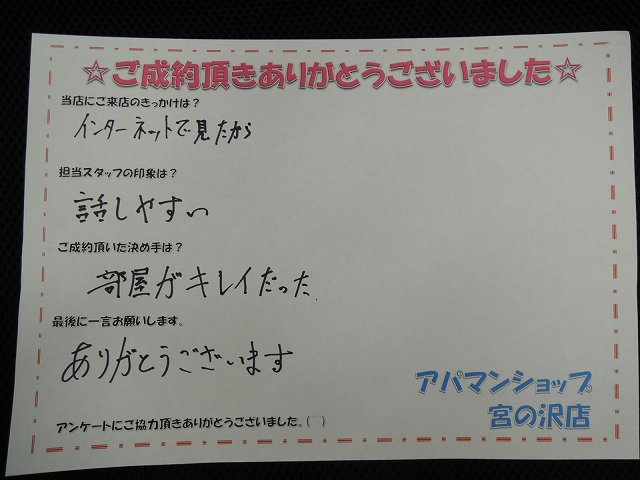 ☆ご成約頂きありがとうございました☆
当店にご来店のきっかけは？
インターネットで見たから
担当スタッフの印象は？
話しやすい
ご成約頂いた決め手は？
部屋がキレイだった
最後に一言お願いします。
ありがとうございます
アパマンショップ
宮の沢店
アンケートにご協力頂きありがとうございました。